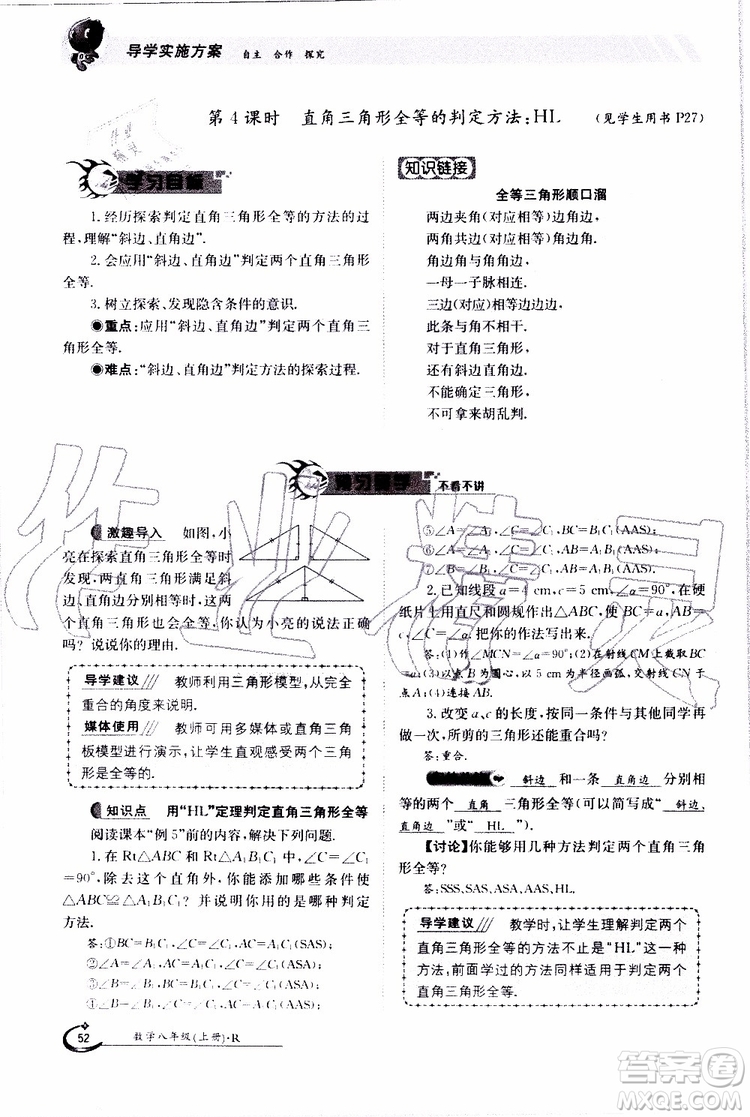 导学实施方案 自主 合作 探究
第4课时 直角三角形全等的判定方法:HL (见学生用书P27)
学习目标
1.经历探索判定直角三角形全等的方法的过
程,理解“斜边、直角边”.
2.会应用“斜边、直角边”判定两个直角三角形
全等.
3.树立探索、发现隐含条件的意识.
◉重点:应用“斜边、直角边”判定两个直角三
角形全等.
◉难点:“斜边、直角边”判定方法的探索过程.
知识链接
全等三角形顺口溜
两边夹角(对应相等)边角边,
两角共边(对应相等)角边角.
角边角与角角边,
一母一子脉相连.
三边(对应)相等边边边,
此条与角不相干.
对于直角三角形,
还有斜边直角边.
不能确定三角形,
不可拿来胡乱判.
预习导学 不看不讲
激趣导入 如图,小
亮在探索直角三角形全等时
发现,两直角三角形满足斜
边、直角边分别相等时,这两
个直角三角形也会全等,你认为小亮的说法正确
吗?说说你的理由.
导学建议 教师利用三角形模型,从完全
重合的角度来说明.
媒体使用 教师可用多媒体或直角三角
板模型进行演示,让学生直观感受两个三角
形是全等的.
知识点 用“HL”定理判定直角三角形全等
阅读课本“例5”前的内容,解决下列问题.
1.在Rt△ABC与Rt△A₁B₁C₁中,∠C=∠C₁
=90°,除去这个直角外,还需要几个条件才能使
△ABC≌△A₁B₁C₁?并说明所运用的三角形判定
方法.
答:①BC=B₁C₁,∠C=∠C₁,AC=A₁C₁(SAS);
②∠A=∠A₁,AC=A₁C₁,∠C=∠C₁(ASA);
①∠C=∠C₁,BC=B₁C₁,∠B=∠B₁(ASA);
⑤∠A=∠A₁,∠C=∠C₁,BC=B₁C₁(AAS);
⑥∠A=∠A₁,∠C=∠C₁,AB=A₁B₁(AAS);
⑦∠B=∠B₁,∠C=∠C₁,AC=A₁C₁(AAS).
2.已知线段a=4 cm,c=5 cm,∠α=90°,在硬
纸片上用直尺和圆规作出△ABC,使BC=a,AB=
c,∠C=∠α.把你的作法写出来.
答:(1)作∠MCN=∠α=90°;(2)在射线CM上截取CB
=a;(3)以B为圆心,以5 cm为半径画弧,交射线CN于
点A;(4)连接AB.
3.改变a、c的长度,按同一条件与其他同学再
次一起画,所剪的三角形还能重合吗?
答:重合.
斜边 和一条 直角边 分别相
等的两个 直角 三角形全等(可简写成“ 斜边、
直角边 ”或“ HL ”).
【讨论】你能够用几种方法判定两个直角三角
形全等?
答:SSS,SAS,ASA,AAS,HL.
导学建议 教学时,让学生理解判定两个
直角三角形全等的方法不止是“HL”这一种
方法,前面学过的方法同样适用于判定两个
直角三角形全等.
52 数学八年级(上册)·R
作业精灵
答案圈
MXQE.COM